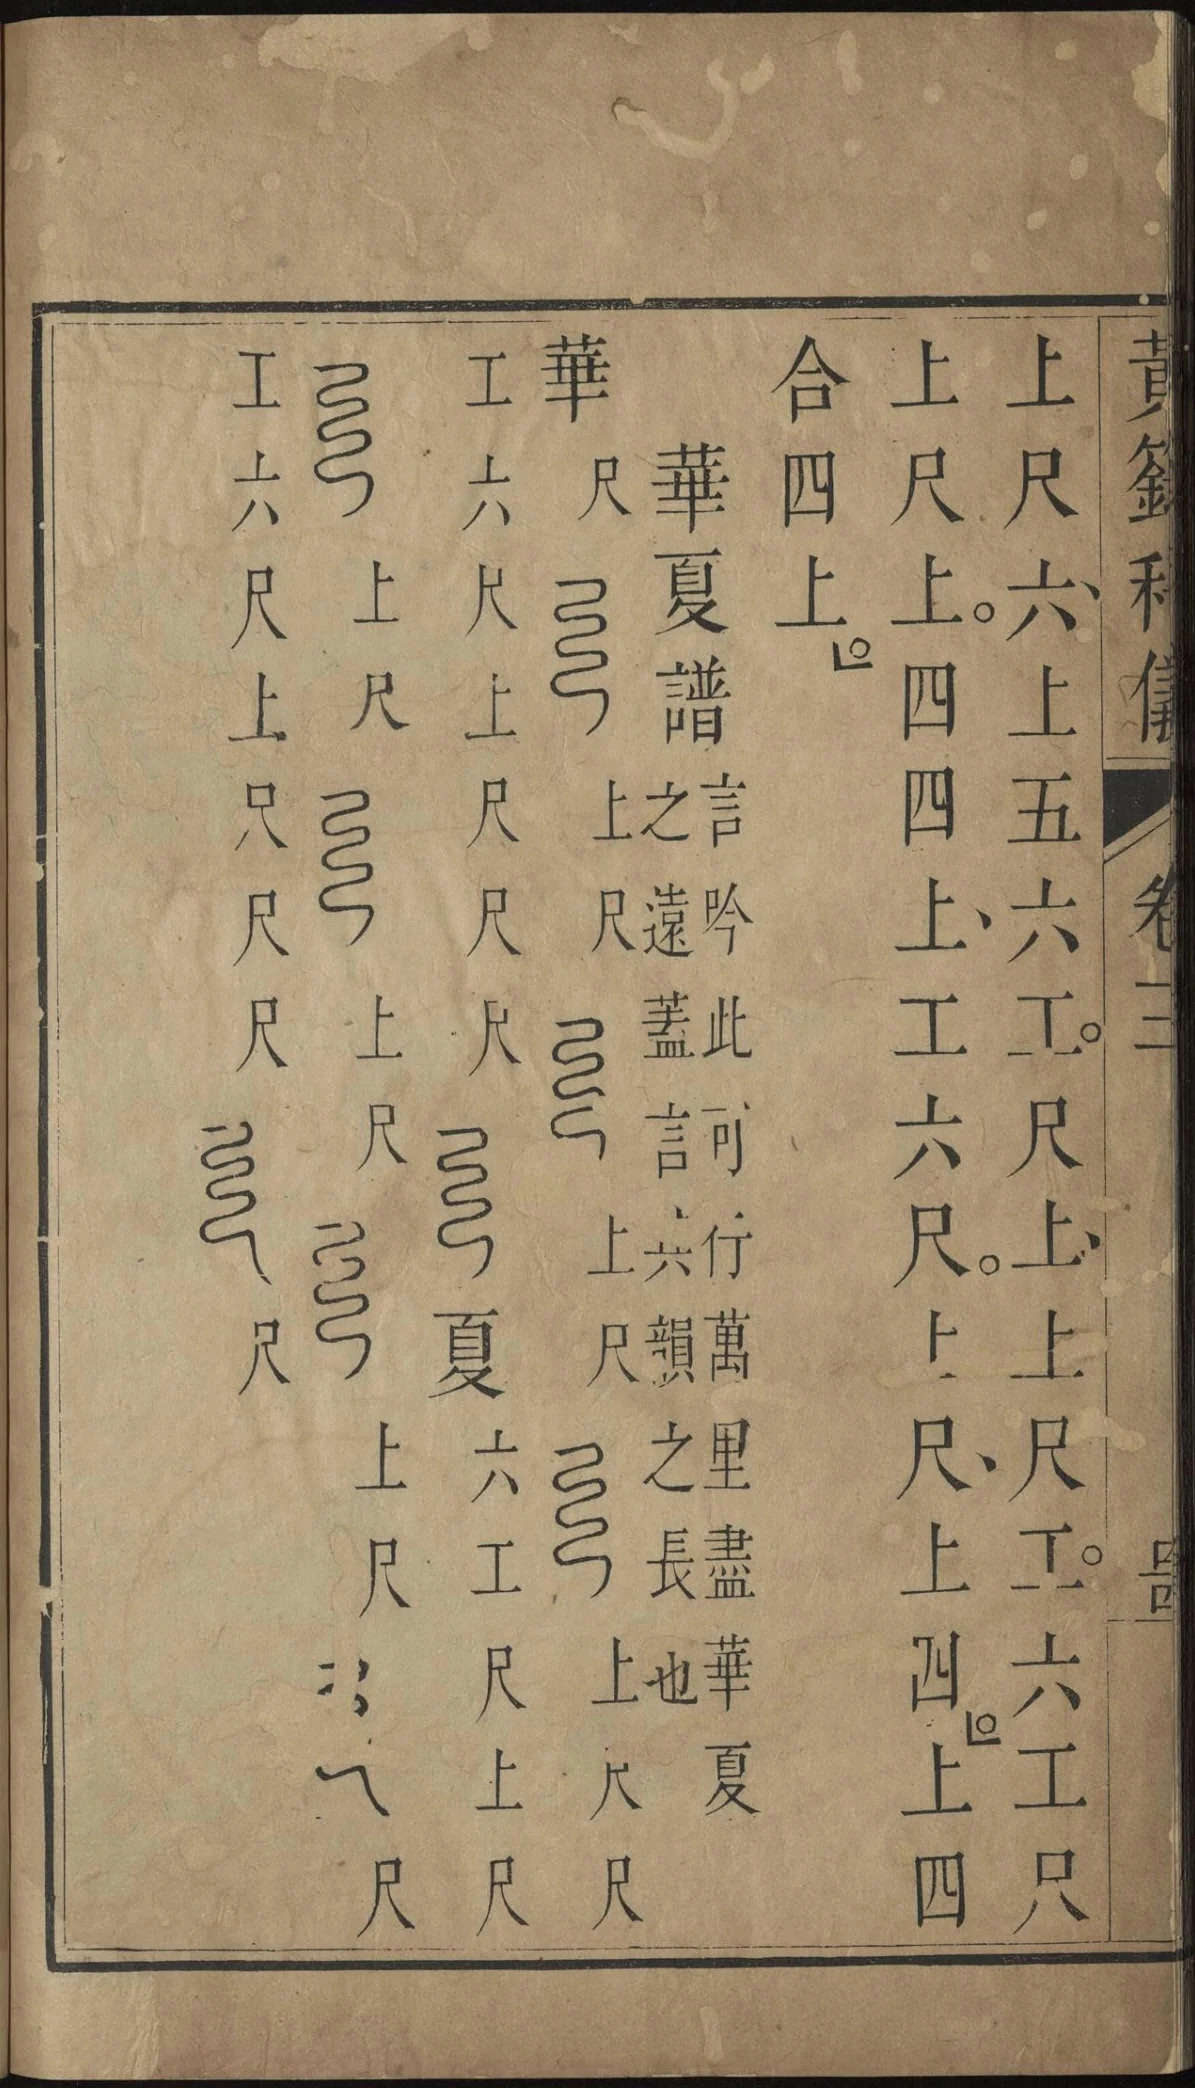 黃籙科儀 卷三
上尺六、上五六工。尺上、上尺工。六工尺
上尺上。四四上、工六尺。上尺、上四上四
合四上
華夏譜
言吟此可行萬里盡華夏
之遠蓋言六韻之長也
華尺 上尺 上尺 上尺尺
工六尺上尺尺尺 夏六工尺上尺
上尺 上尺 上尺 尺
工六尺上尺尺尺 尺